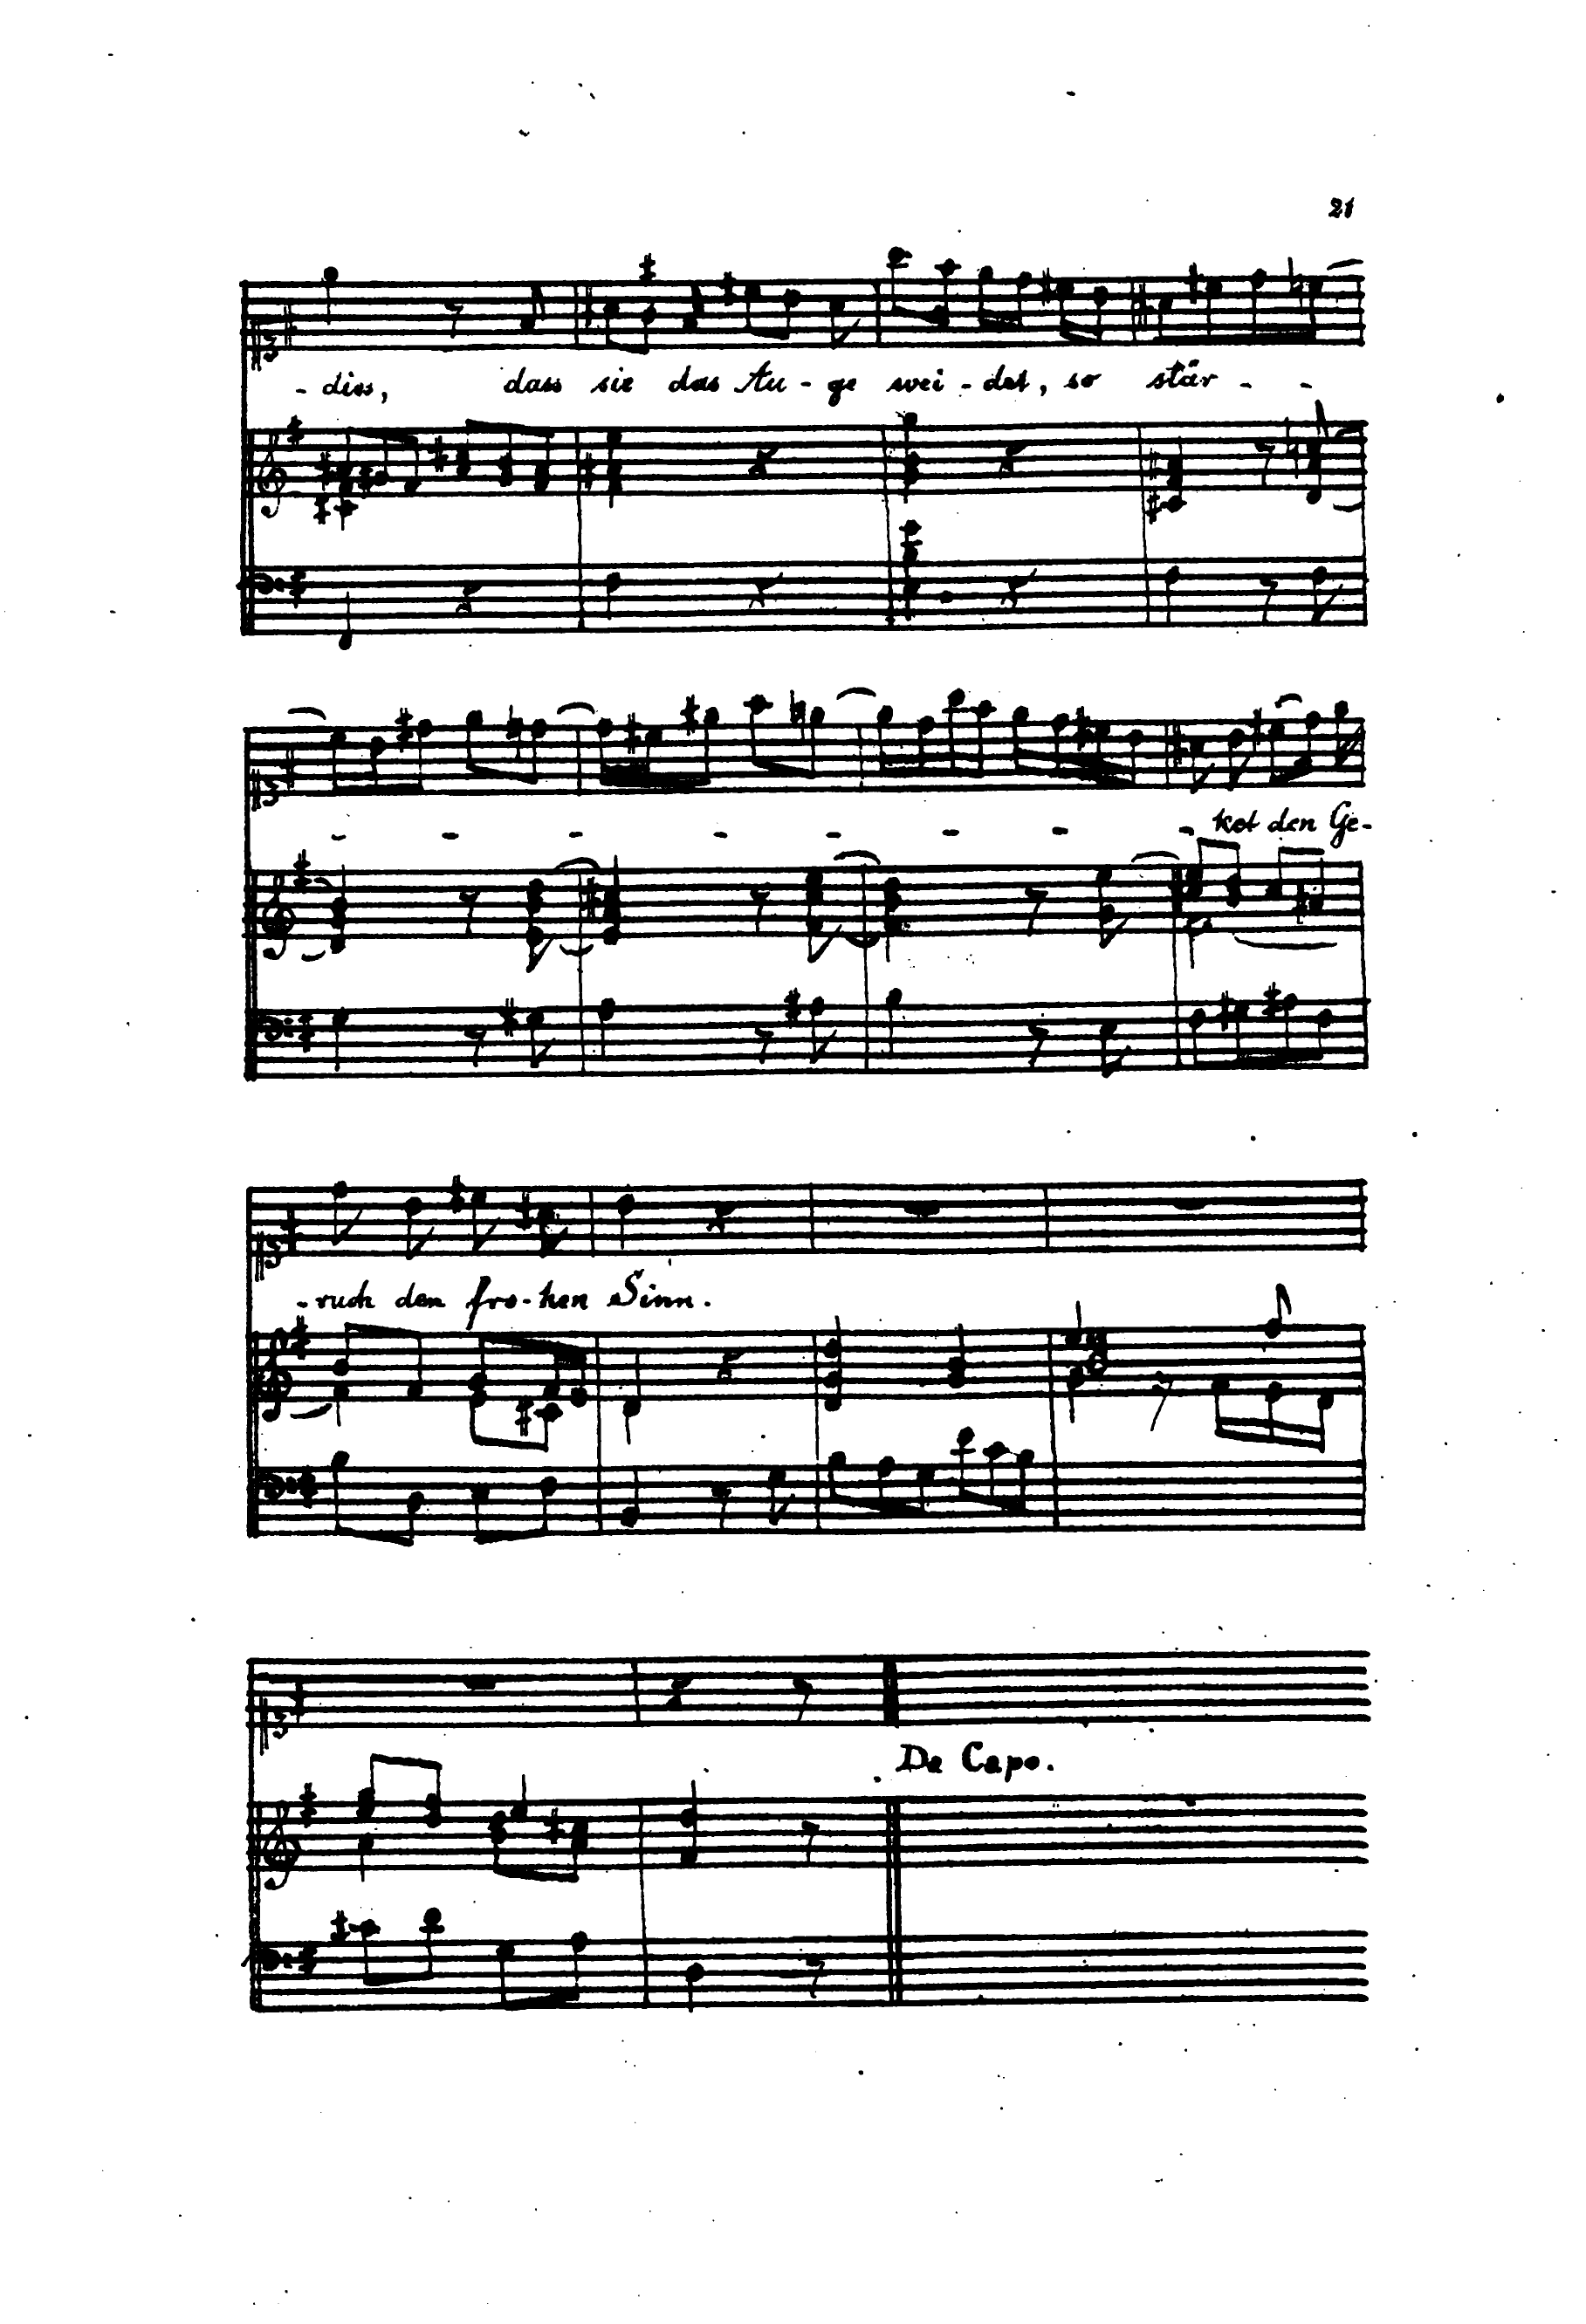 21
- diss, dass sie das Au - ge wei - det, so stär - -
- - - - - - - - ket den Ge-
-ruch den fro-hen Sinn.
Da Capo.